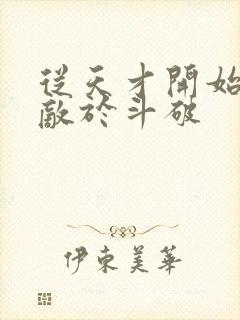 從天才開始
敵於斗破
伊東美華